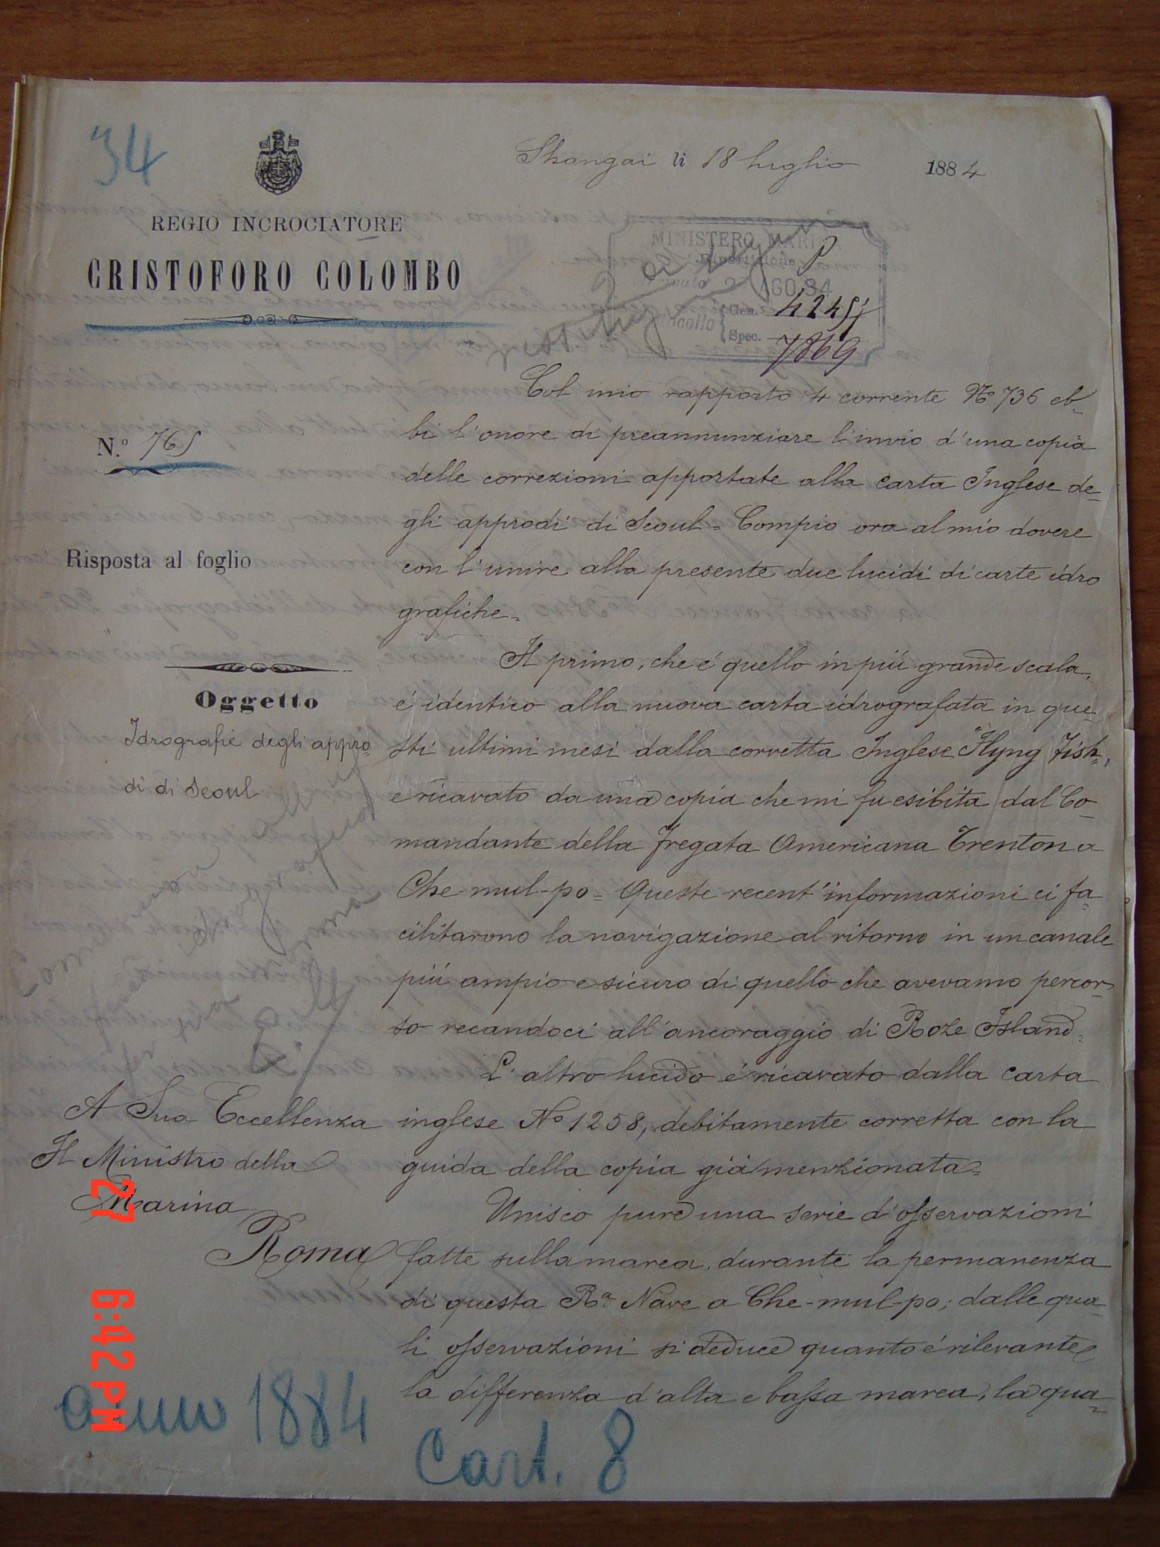 34
Shangai li 18 luglio 1884
REGIO INCROCIATORE
CRISTOFORO COLOMBO
MINISTERO MARINA
AGO.84
Gen. 4245
Spec. 7869
N.º 765
Risposta al foglio
Oggetto
Idrografie degli appro
di di Seoul
Col mio rapporto 4 corrente Nº 736 eb-
bi l'onore di preannunziare l'invio d'una copia
delle correzioni apportate alla carta Inglese de-
gli approdi di Seoul = Compio ora al mio dovere
con l'unire alla presente due lucidi di carte idro
grafiche =
Il primo, che é quello in piú grande scala,
é identico alla nuova carta idrografata in que-
sti ultimi mesi dalla corvetta Inglese "Flyng Fish,,
e ricavato da una copia che mi fu esibita dal Co-
mandante della Fregata Americana Trenton a
Che-mul-po = Queste recenti informazioni ci fa-
cilitarono la navigazione al ritorno in un canale
piú ampio e sicuro di quello che avevamo percor-
so recandoci all'ancoraggio di Roze Island =
L'altro lucido é ricavato dalla carta
inglese Nº 1258, debitamente corretta con la
guida della copia giá menzionata =
Unisco pure una serie d'osservazioni
fatte sulla marea, durante la permanenza
di questa Rª Nave a Che-mul-po; dalle qua-
li osservazioni si deduce quanto é rilevante
la differenza d'alta e bassa marea, la qua-
A Sua Eccellenza
Il Ministro della
Marina
Roma
27
6:42 PM
anno 1884
Cart. 8